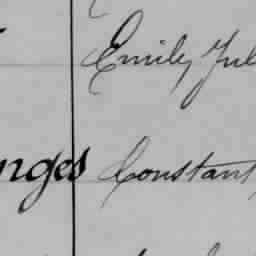 Emily Jul
nges Constant